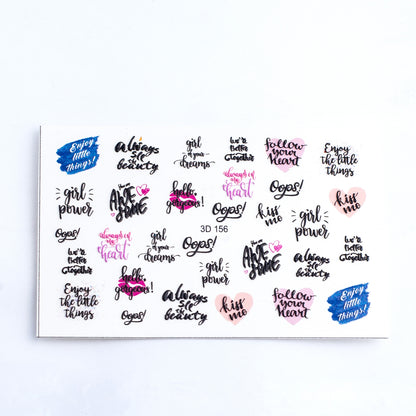 Enjoy
little
things!
always
see
beauty
girl
of your
dreams
we're
better
together
follow
your
heart
Enjoy
the little
things
girl
power
hello,
gorgeous!
always in
my
heart
Oops!
kiss
me
girl
power
kiss
me
Oops!
always in
my
heart
girl
of your
dreams
3D 156
Oops!
we're
better
together
Enjoy
the little
things
hello,
gorgeous!
girl
power
Oops!
always
see
beauty
kiss
me
follow
your
heart
Enjoy
little
things!
Oops!